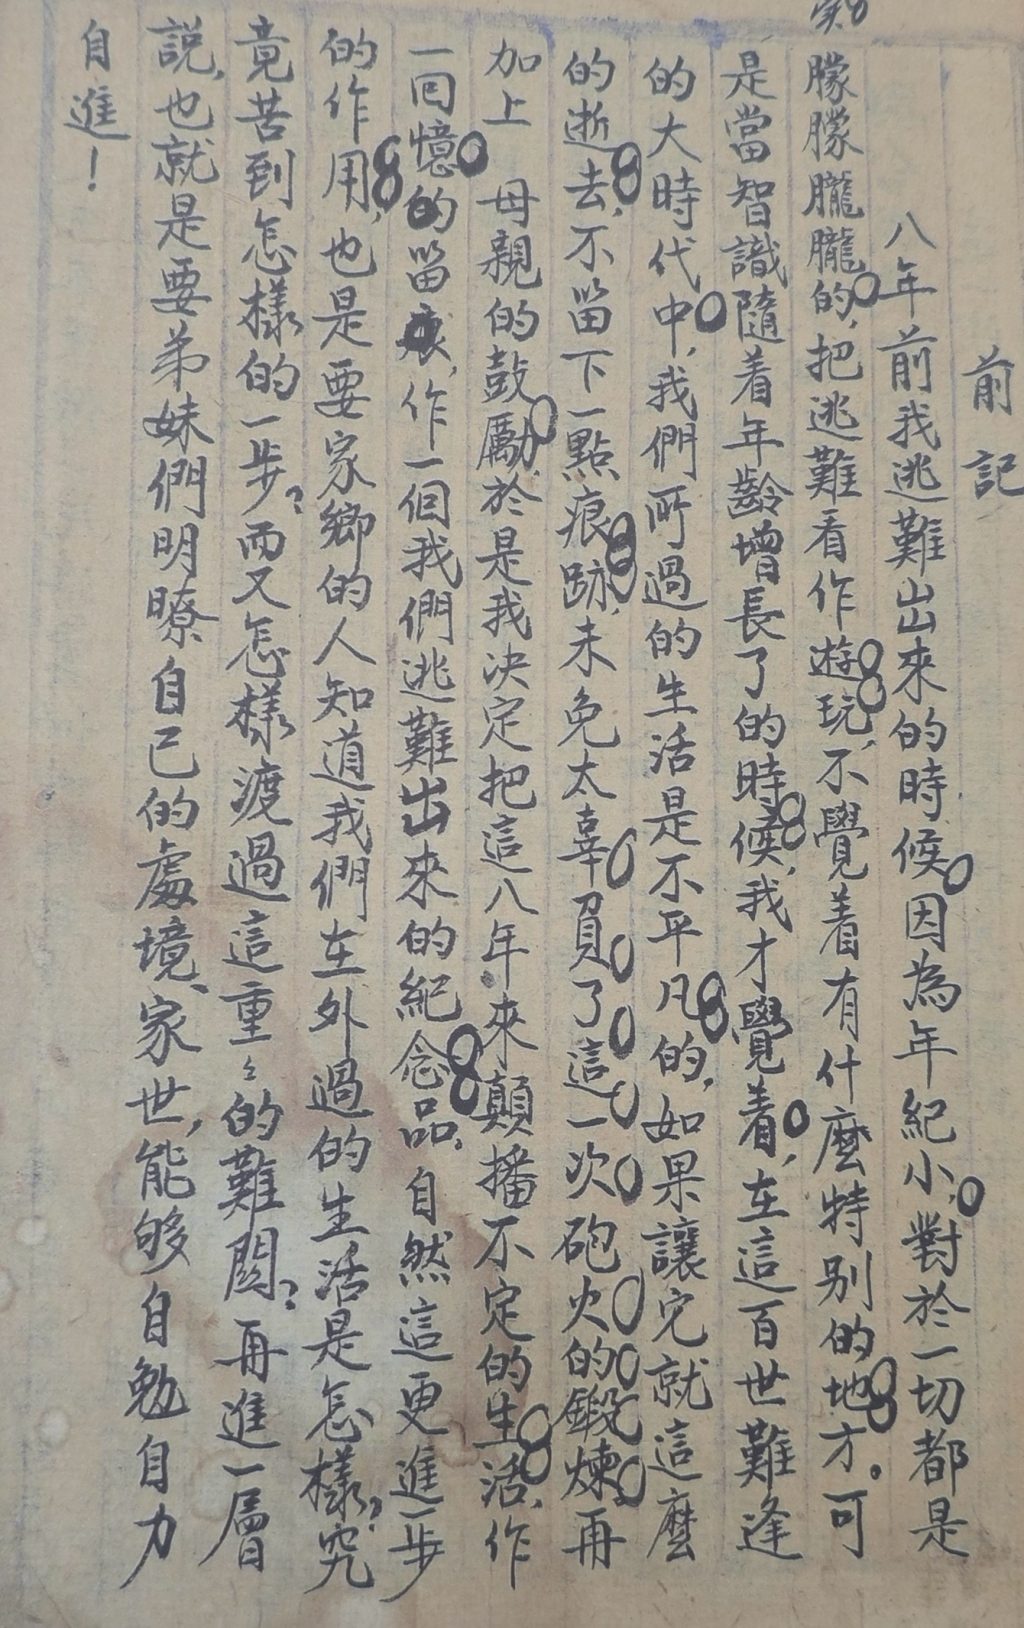 前記
八年前我逃難出來的時候因為年紀小,對於一切都是
朦朦朧朧的,把逃難看作遊玩,不覺着有什麼特別的地方。可
是當智識隨着年齡增長了的時候,我才覺着,在這百世難逢
的大時代中,我們所過的生活是不平凡的,如果讓它就這麼
的逝去,不留下一點痕跡,未免太辜負了這一次砲火的鍛煉,再
加上 母親的鼓勵,於是我決定把這八年來顛播不定的生活,作
一回憶的留痕,作一個我們逃難出來的紀念品,自然這更進一步
的作用,也是要家鄉的人知道我們在外過的生活是怎樣?究
竟苦到怎樣的一步?而又怎樣渡過這重々的難關?再進一層
說,也就是要弟妹們明瞭自己的處境、家世,能够自勉自力
自進!